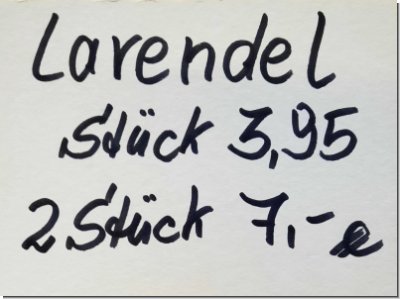 Lavendel
Stück 3,95
2 Stück 7,- €